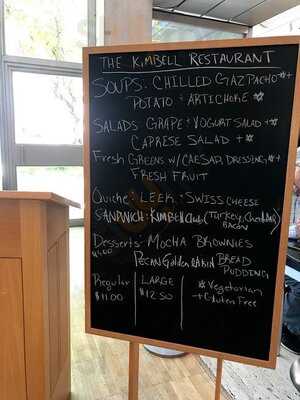 THE KIMBELL RESTAURANT
SOUPS: CHILLED GAZPACHO *+
POTATO & ARTICHOKE *
SALADS: GRAPE & YOGURT SALAD +*
CAPRESE SALAD +*
FRESH GREENS W/CAESAR DRESSING *+
FRESH FRUIT
QUICHE: LEEK & SWISS CHEESE
SANDWICH: KIMBELL Club (Turkey, Cheddar,
BACON)
Desserts: MOCHA BROWNIES
PECAN Golden RAISIN BREAD
PUDDING
Regular
LARGE
* Vegetarian
$11.00
$12.50
+ Gluten Free